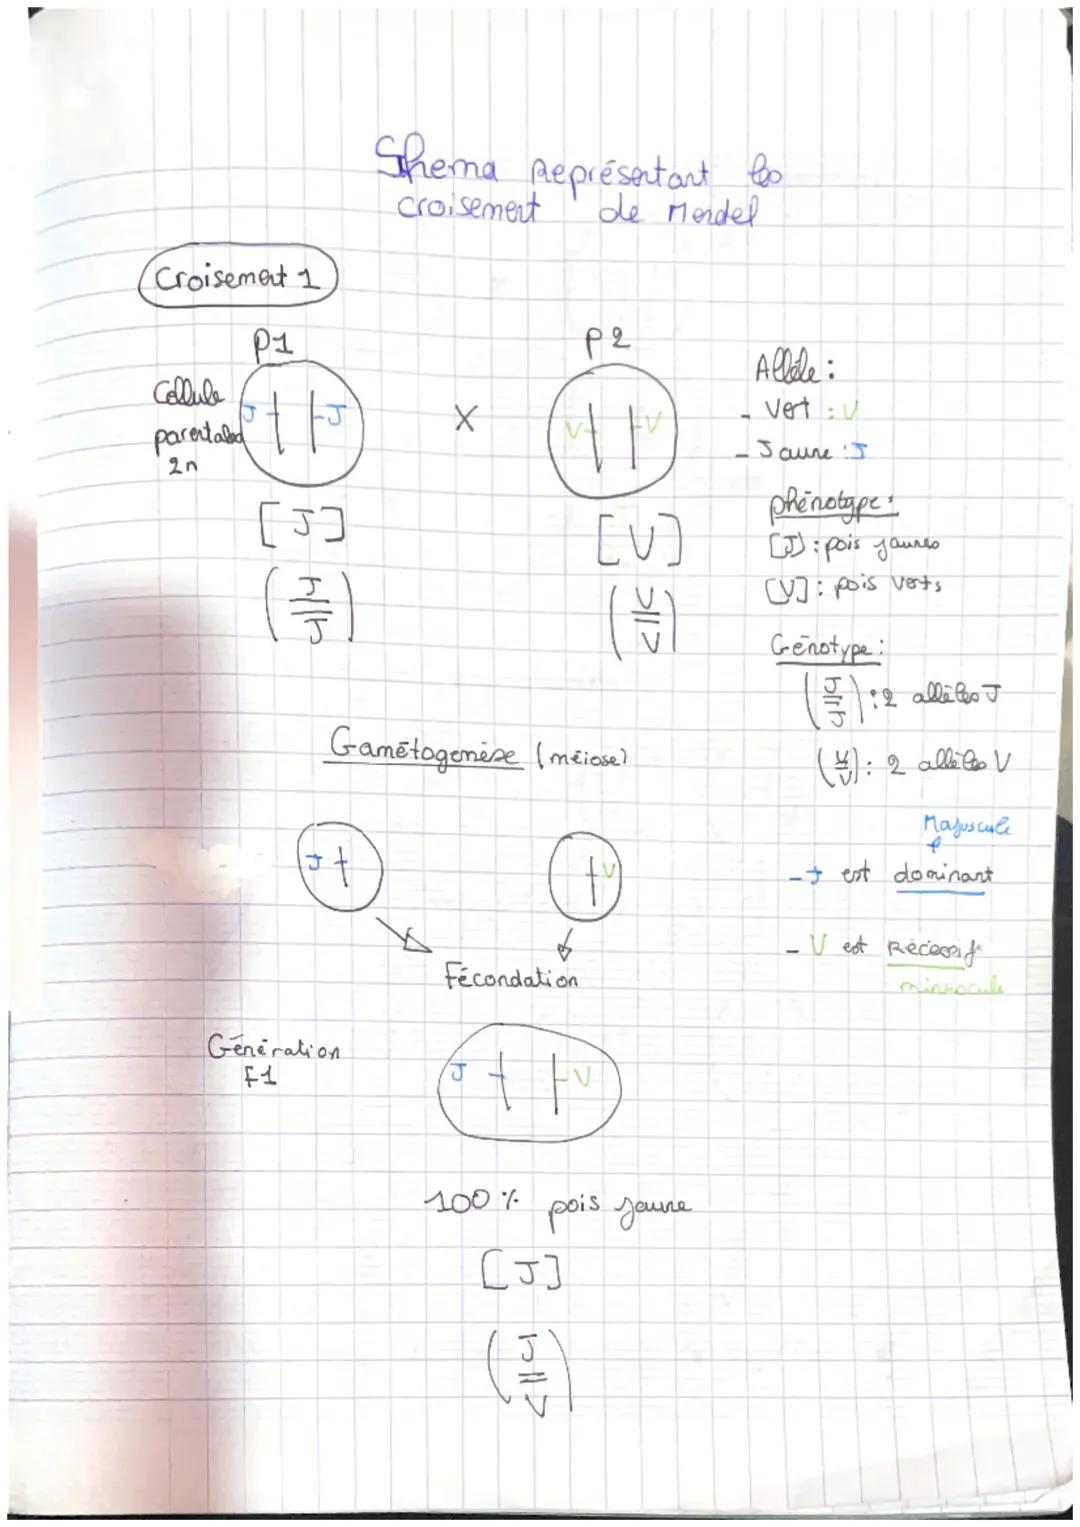 Shema Représentant les
croisement de Mendel
Croisement 1
P1
P2
Cellule
parentales
2n
J
J
X
V
V
[J]
[V]
(J/J)
(V/V)
Allèle :
- Vert : V
- Jaune : J
phénotype :
[J] : pois jaunes
[V] : pois verts
Génotype :
(J/J) : 2 allèles J
(V/V) : 2 allèles V
Majuscule
- J est dominant
- V est Récessif
minuscule
Gamétogenèse (méiose)
J
V
Fécondation
Génération
F1
J
V
100 % pois jaune
[J]
(J/V)